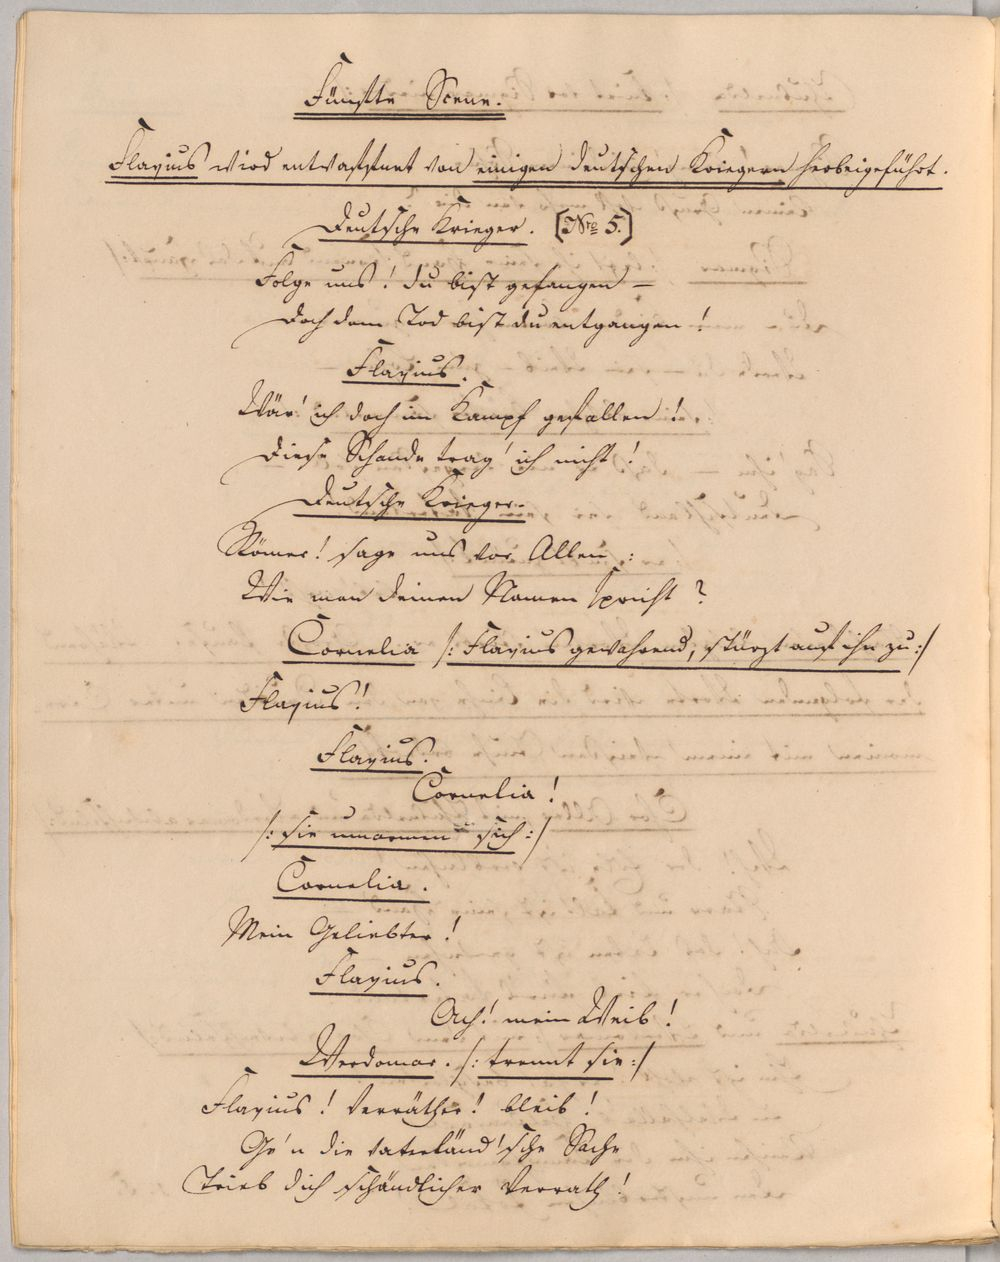 Fünfte Scene.
Flavius wird entwaffnet von einigen deutschen Kriegern herbeigeführt.
Deutsche Krieger. [Nro 5.]
Folge uns! du bist gefangen –
Doch dem Tod bist du entgangen!
Flavius.
Wär' ich doch im Kampf gefallen!
Diese Schande trag' ich nicht!
Deutsche Krieger.
Römer! sage uns vor Allen:
Wie man deinen Namen spricht?
Cornelia /: Flavius gewahrend, stürzt auf ihn zu :/
Flavius!
Flavius.
Cornelia!
/: sie umarmen sich :/
Cornelia.
Mein Geliebter!
Flavius.
Ach! mein Weib!
Werdomar. /: trennt sie :/
Flavius! Verräther! bleib!
Ge'n die vaterländ'sche Sache
Trieb dich schändlicher Verrath!